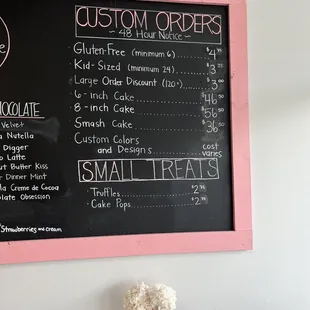 CUSTOM ORDERS
~ 48 Hour Notice ~
Gluten-Free (minimum 6) $4
Kid-Sized (minimum 24) $3
Large Order Discount (120+) $3
6-inch Cake $46
8-inch Cake $56
Smash Cake $36
Custom Colors
and Designs cost varies
SMALL TREATS
Truffles $2
Cake Pops $2
CHOCOLATE
Velvet
Nutella
Digger
Latte
Butter Kiss
Dinner Mint
Creme de Cocoa
Obsession
Strawberries
cream